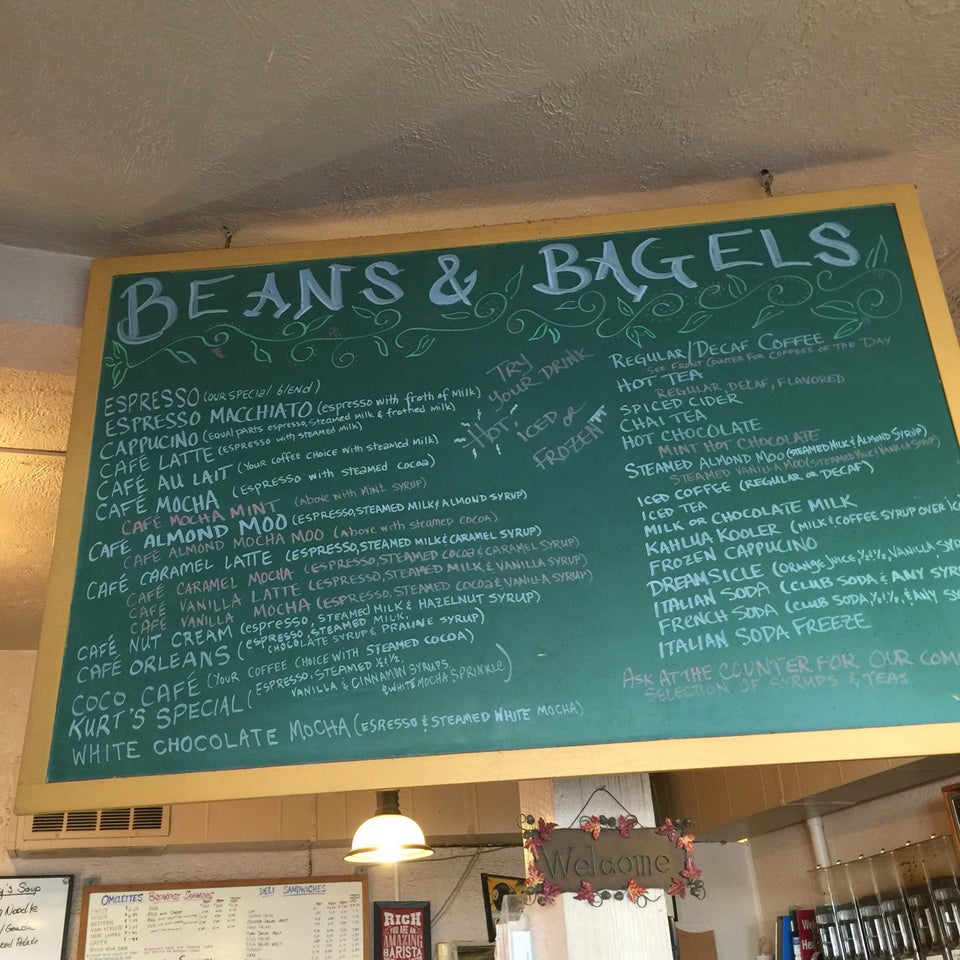 BEANS & BAGELS
ESPRESSO (OUR SPECIAL BLEND)
ESPRESSO MACCHIATO (espresso with froth of milk)
CAPPUCINO (Equal parts espresso, steamed milk & frothed milk)
CAFÉ LATTE (espresso with steamed milk)
CAFÉ AU LAIT (Your coffee choice with steamed milk)
CAFÉ MOCHA (espresso with steamed cocoa)
CAFÉ MOCHA MINT (above with mint syrup)
CAFÉ ALMOND MOO (ESPRESSO, STEAMED MILK & ALMOND SYRUP)
CAFÉ ALMOND MOCHA MOO (above with steamed cocoa)
CAFÉ CARAMEL LATTE (ESPRESSO, STEAMED MILK & CARAMEL SYRUP)
CAFÉ CARAMEL MOCHA (ESPRESSO, STEAMED COCOA & CARAMEL SYRUP)
CAFÉ VANILLA LATTE (ESPRESSO, STEAMED MILK & VANILLA SYRUP)
CAFÉ VANILLA MOCHA (ESPRESSO, STEAMED COCOA & VANILLA SYRUP)
CAFÉ NUT CREAM (espresso, STEAMED MILK & HAZELNUT SYRUP)
CAFÉ ORLEANS (espresso, STEAMED MILK,
CHOCOLATE SYRUP & PRALINE SYRUP)
COCO CAFÉ (YOUR COFFEE CHOICE WITH STEAMED COCOA)
KURT'S SPECIAL (ESPRESSO, STEAMED ½&½,
VANILLA & CINNAMON SYRUPS
& WHITE MOCHA SPRINKLE)
WHITE CHOCOLATE MOCHA (ESPRESSO & STEAMED WHITE MOCHA)
TRY
YOUR DRINK
HOT!
ICED OR
FROZEN!
REGULAR/DECAF COFFEE
SEE FRONT COUNTER FOR COFFEES OF THE DAY
HOT TEA
REGULAR, DECAF, FLAVORED
SPICED CIDER
CHAI TEA
HOT CHOCOLATE
MINT HOT CHOCOLATE
STEAMED ALMOND MOO (STEAMED MILK & ALMOND SYRUP)
STEAMED VANILLA MOO (STEAMED MILK & VANILLA SYRUP)
ICED COFFEE (REGULAR OR DECAF)
ICED TEA
MILK OR CHOCOLATE MILK
KAHLUA KOOLER (MILK & COFFEE SYRUP OVER IC
FROZEN CAPPUCINO
DREAMSICLE (ORANGE JUICE, ½&½, VANILLA SYR
ITALIAN SODA (CLUB SODA & ANY SYR
FRENCH SODA (CLUB SODA, ½&½, & ANY SY
ITALIAN SODA FREEZE
ASK AT THE COUNTER FOR OUR COM
SELECTION OF SYRUPS & TEAS
Welcome
y's Soup
Noodle
OMELETTES
BREAKFAST SANDWICHES
DELI SANDWICHES
CHEESE
VEGGIE
WESTERN
HAM & CHEESE
MEAT LOVERS
GREEK
RICH
YOU ARE AN
AMAZING
BARISTA